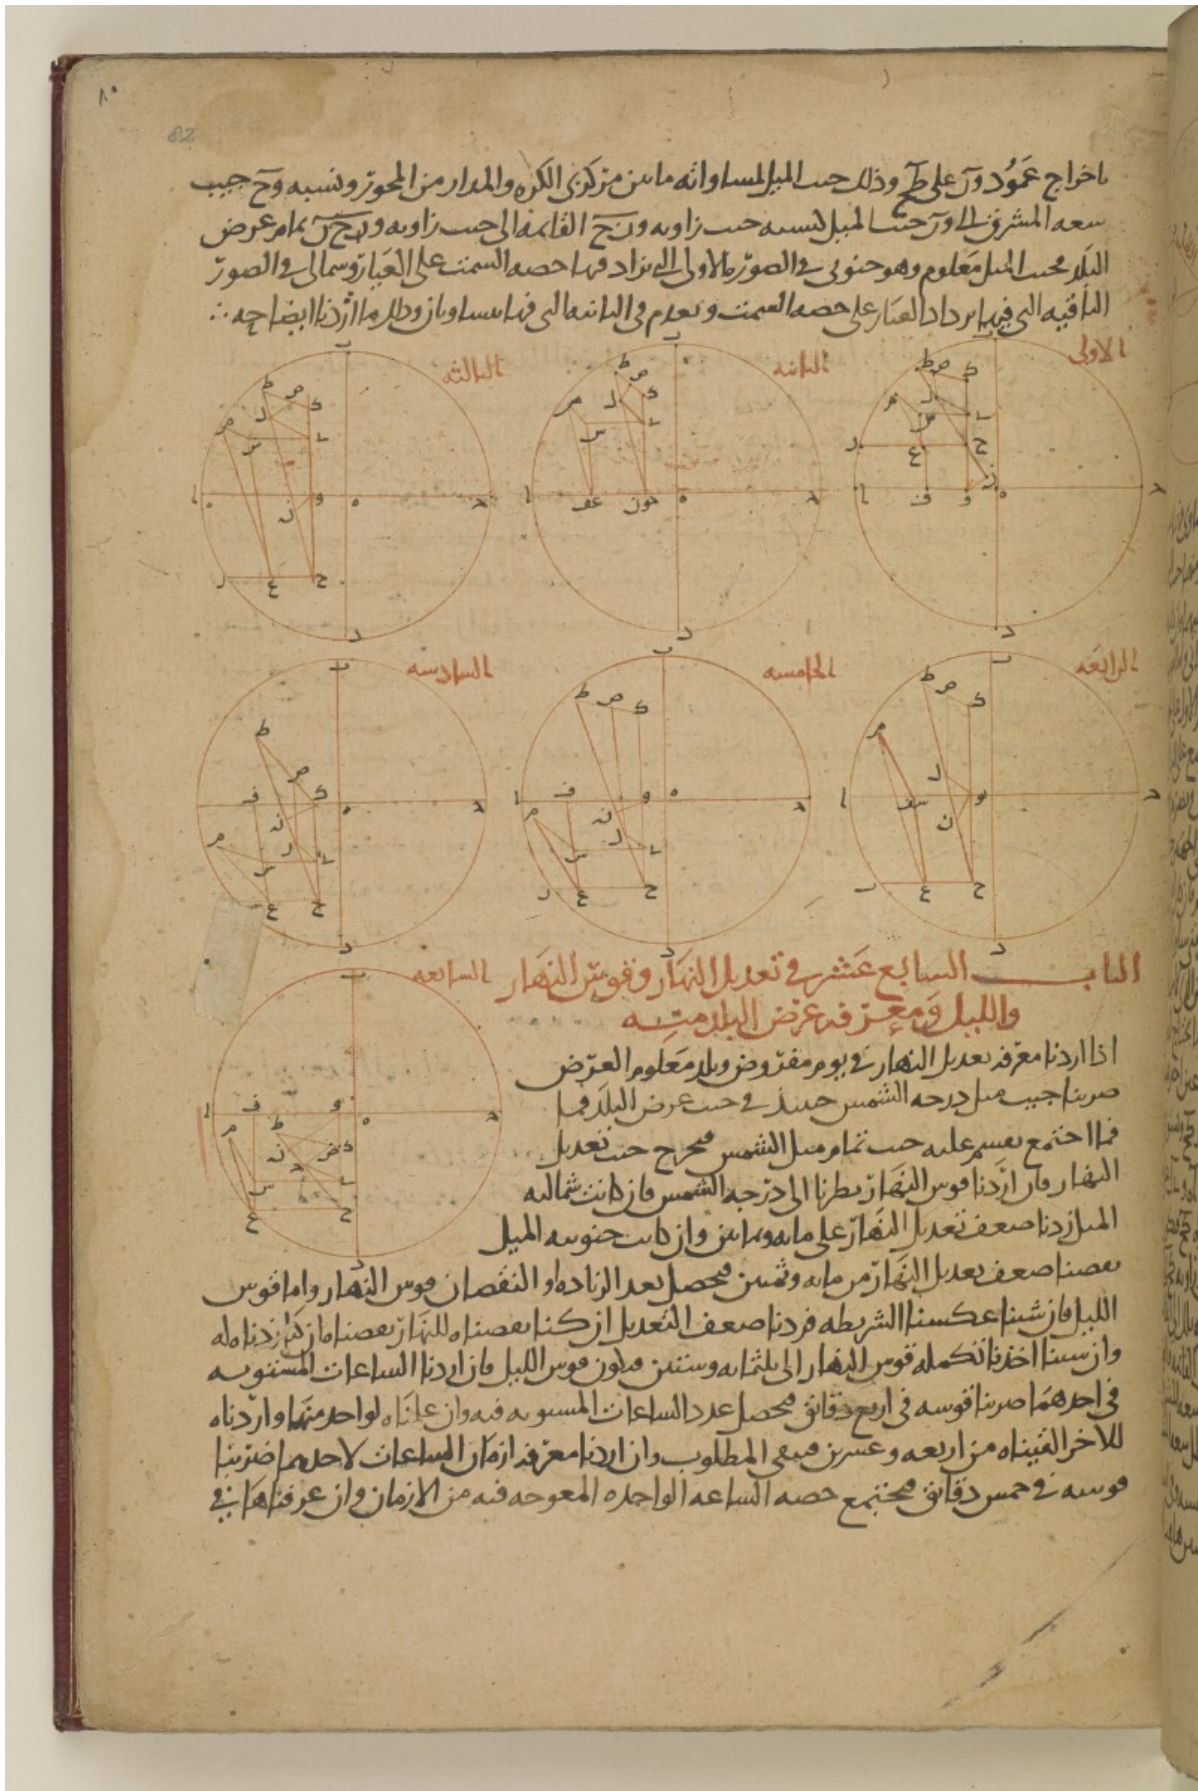 باخراج عمود ون على طح وذلك جيب الميل لمساواته ما بين مركزى الكره والمدار من المحور ونسبه وح جيب
سعه المشرق الى ون جيب الميل كنسبه جيب زاويه ون ح القائمه الى جيب زاويه وح ن تمام عرض
البلد فجيب الميل معلوم وهو جنوبى فى الصور الاولى التى تزاد فيها حصه السمت على العيار وشمالى فى الصور
الباقيه التى فيها يزداد العيار على حصه السمت ويعدم فى الثانيه التى فيها يتساويان وذلك ما اردنا ايضاحه ∴
الاولى
الثانيه
الثالثه
الرابعه
الخامسه
السادسه
السابعه
الباب السابع عشر فى تعديل النهار وقوس النهار
والليل ومعرفه عرض البلد منه
اذا اردنا معرفه تعديل النهار فى يوم مفروض وبلد معلوم العرض
ضربنا جيب ميل درجه الشمس حينئذ فى جيب عرض البلد
فما اجتمع نقسم عليه جيب تمام ميل الشمس فيخرج جيب تعديل
النهار فان اردنا قوس النهار نظرنا الى درجه الشمس فان كانت شماليه
الميل زدنا ضعف تعديل النهار على مايه وثمانين وان كانت جنوبيه الميل
نقصنا ضعف تعديل النهار من مايه وثمنين فيحصل بعد الزياده او النقصان قوس النهار واما قوس
الليل فان شئنا عكسنا الشريطه فزدنا ضعف التعديل ان كنا نقصناه للنهار ونقصناه ان كنا زدناه له
وان شئنا اخذنا تكمله قوس النهار الى ثلثمايه وستين فيكون قوس الليل فان اردنا الساعات المستويه
فى احدهما ضربنا قوسه فى اربع دقائق فيحصل عدد الساعات المستويه فيه وان علمناه لواحد منهما واردناه
للاخر القيناه من اربعه وعشرين فيبقى المطلوب وان اردنا معرفه ازمان الساعات لاحدهما ضربنا
قوسه فى خمس دقائق فيجتمع حصه الساعه الواحده المعوجه فيه من الازمان وان عرفناها فى